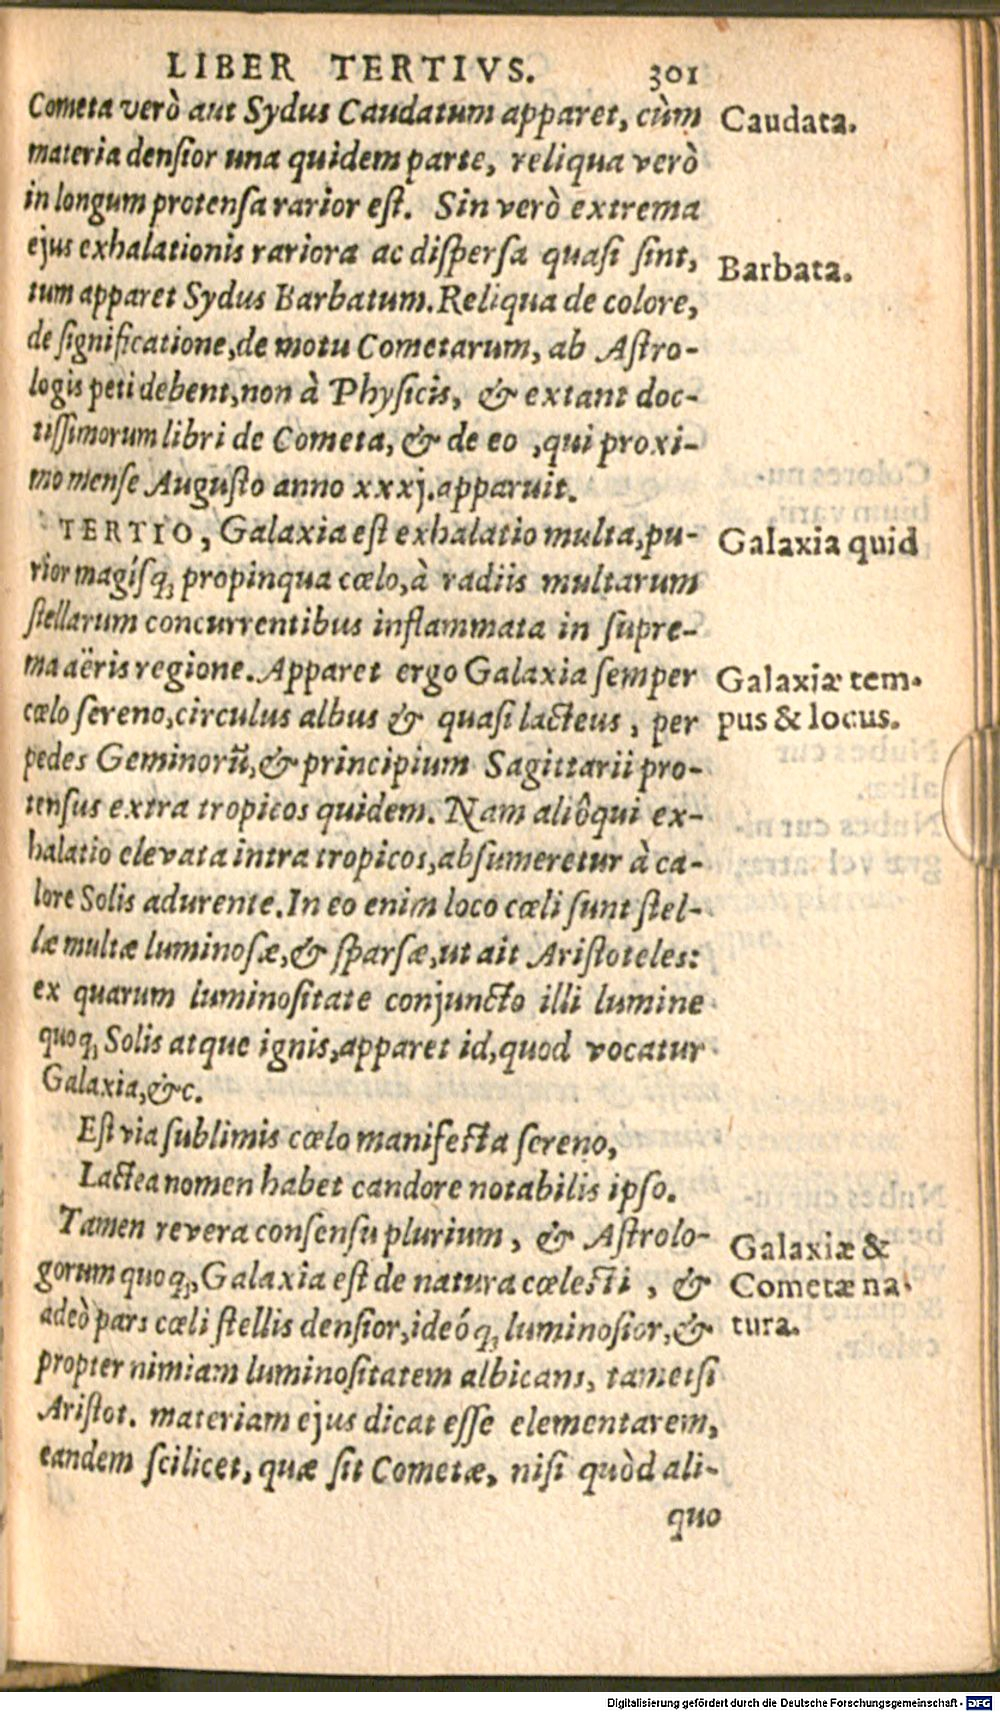 LIBER TERTIVS. 301
Cometa verò aut Sydus Caudatum apparet, cùm
Caudata.
materia densior una quidem parte, reliqua verò
in longum protensa rarior est. Sin verò extrema
ejus exhalationis rariora ac dispersa quasi sint,
Barbata.
tum apparet Sydus Barbatum. Reliqua de colore,
de significatione, de motu Cometarum, ab Astro-
logis peti debent, non à Physicis, & extant doc-
tissimorum libri de Cometa, & de eo, qui proxi-
mo mense Augusto anno xxxj. apparuit.
TERTIO, Galaxia est exhalatio multa, pu-
Galaxia quid
rior magísq; propinqua cœlo, à radiis multarum
stellarum concurrentibus inflammata in supre-
ma aëris regione. Apparet ergo Galaxia semper
Galaxiæ tem-
cœlo sereno, circulus albus & quasi lacteus, per
pus & locus.
pedes Geminorũ, & principium Sagittarii pro-
tensus extra tropicos quidem. Nam aliôqui ex-
halatio elevata intra tropicos, absumeretur à ca-
lore Solis adurente. In eo enim loco cœli sunt stel-
læ multæ luminosæ, & sparsæ, ut ait Aristoteles:
ex quarum luminositate conjuncto illi lumine
quoq; Solis atque ignis, apparet id, quod vocatur
Galaxia, &c.
Est via sublimis cœlo manifesta sereno,
Lactea nomen habet candore notabilis ipso.
Tamen revera consensu plurium, & Astrolo-
Galaxiæ &
gorum quoq;, Galaxia est de natura cœlesti, &
Cometæ na-
adeò pars cœli stellis densior, ideóq; luminosior, &
tura.
propter nimiam luminositatem albicans, tametsi
Aristot. materiam ejus dicat esse elementarem,
eandem scilicet, quæ sit Cometæ, nisi quòd ali-
quo
Digitalisierung gefördert durch die Deutsche Forschungsgemeinschaft - DFG